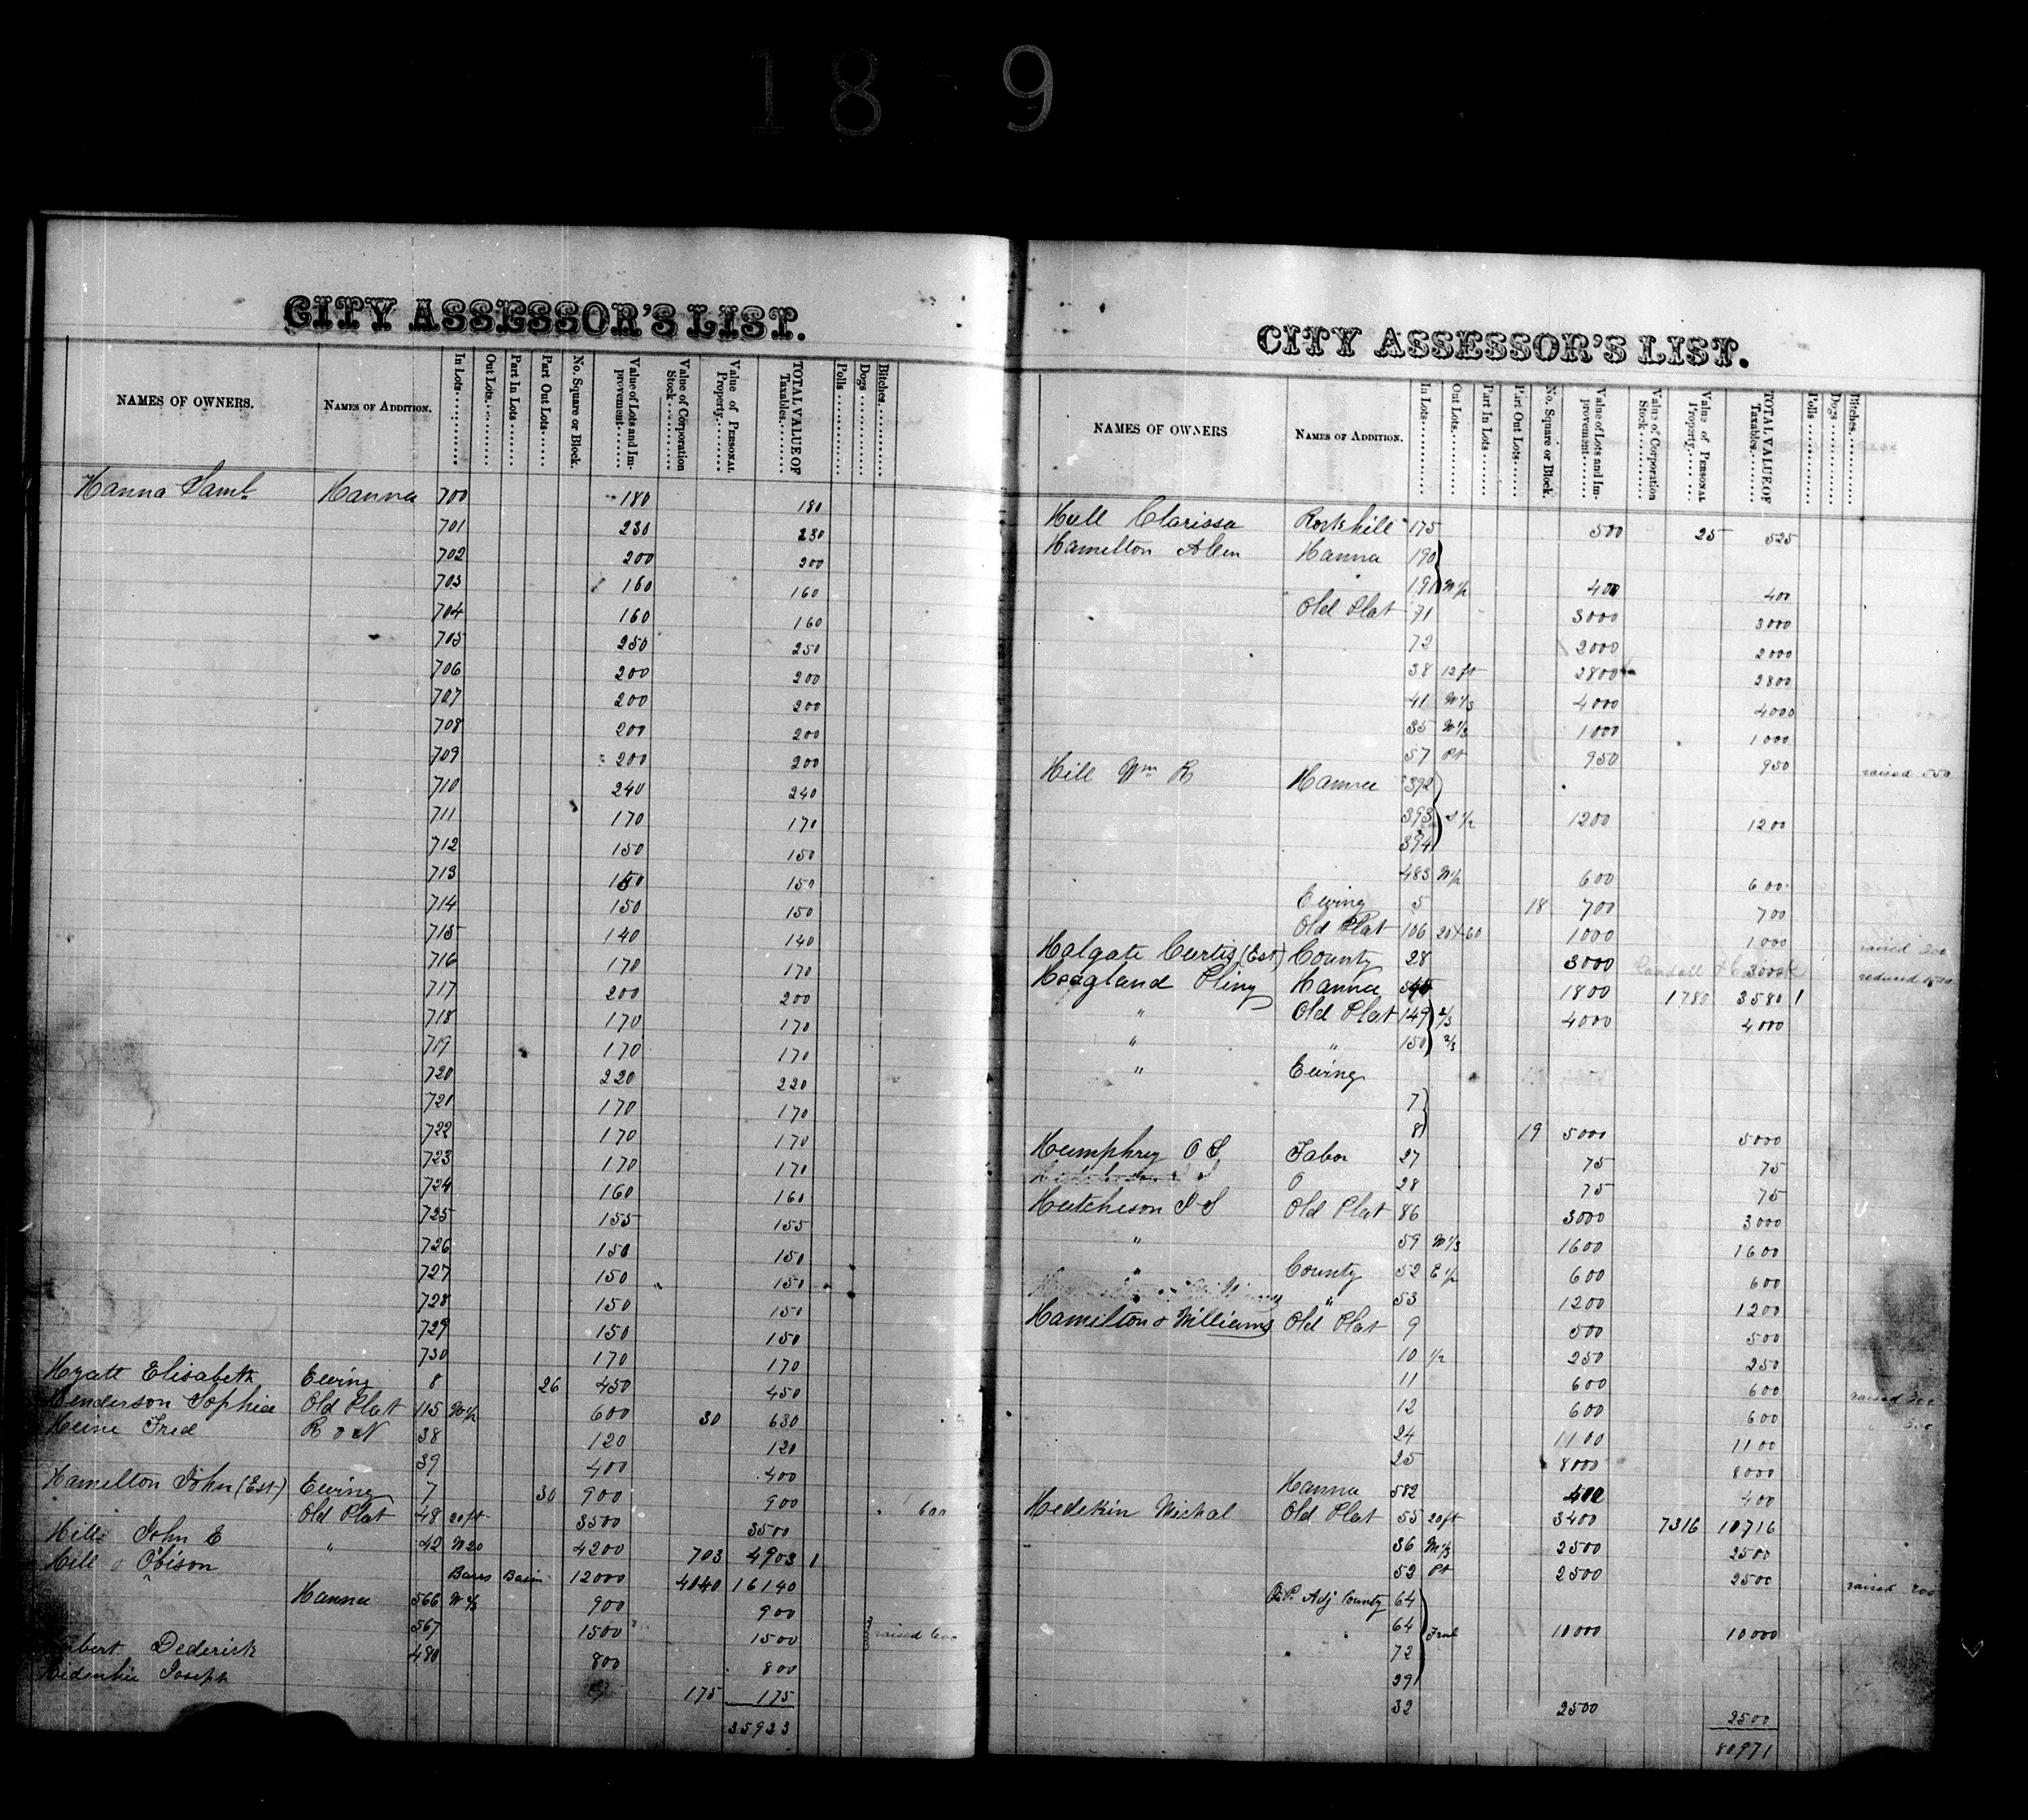 18 9
CITY ASSESSOR'S LIST.
NAMES OF OWNERS. NAMES OF ADDITION. In Lots Out Lots Part In Lots Part Out Lots No. Square or Block. Value of Lots and Improvement Value of Corporation Stock Value of PERSONAL Property. TOTAL VALUE OF Taxables. Polls Dogs Bitches.
Hanna Saml. Hanna 700 180 180
701 230 230
702 200 200
703 160 160
704 160 160
705 250 250
706 200 200
707 200 200
708 200 200
709 200 200
710 240 240
711 170 170
712 150 150
713 150 150
714 150 150
715 140 140
716 170 170
717 200 200
718 170 170
719 170 170
720 220 220
721 170 170
722 170 170
723 170 170
724 160 160
725 155 155
726 150 150
727 150 150
728 150 150
729 150 150
730 170 170
Hyatt Elisabeth Ewing 8 26 450 450
Henderson Sophia Old Plat 115 W 1/2 600 30 630
Heine Fred R & N 38 120 120
39 400 400
Hamilton John (Est) Ewing 7 30 900 900
Old Plat 48 20 ft 3500 3500 600
Hill John E " 42 W20 4200 703 4903 1
Hill & Obison Barrs Basin 12000 4040 16140
Hanna 566 900 900
567 1500 1500 raised 600
Dederick 480 800 800
Joseph 175 175
35923
CITY ASSESSOR'S LIST.
NAMES OF OWNERS NAMES OF ADDITION. In Lots Out Lots Part In Lots Part Out Lots No. Square or Block. Value of Lots and Improvement Value of Corporation Stock Value of PERSONAL Property. TOTAL VALUE OF Taxables. Polls Dogs Bitches.
Hull Clarissa Rockhill 175 500 25 525
Hamilton Allen Hanna 190
191 W 1/2 400 400
Old Plat 71 3000 3000
72 2000 2000
38 12 ft 2800 2800
41 W 1/3 4000 4000
35 W 1/3 1000 1000
57 Pt 950 950 raised 550
Hill Wm R Hanna 392
393 S 1/2 1200 1200
394
483 W 1/2 600 600
Ewing 5 18 700 700
Old Plat 106 20+60 1000 1000 raised 300
Holgate Curtis (Est) County 28 3000 3000 reduced
Hoagland Pliny Hanna 1800 1780 3580 1
" Old Plat 149 2/3 4000 4000
" " 150 2/3
" Ewing
7
8 19 5000 5000
Humphrey O S Tabor 27 75 75
28 75 75
Hutcheson I S Old Plat 86 3000 3000
" 59 W 1/3 1600 1600
" County 52 E 1/2 600 600
" 53 1200 1200
Hamilton & Williams Old Plat 9 500 500
10 1/2 250 250
11 600 600 raised 300
12 600 600 300
24 1100 1100
25 8000 8000
Hanna 582 400 400
Hedekin Michal Old Plat 55 20 ft 3400 7316 10716
36 W 1/3 2500 2500
52 Pt 2500 2500 raised
O.P. Adj County 64
64 Fral 10000 10000
72
29
32 2500 2500
80971